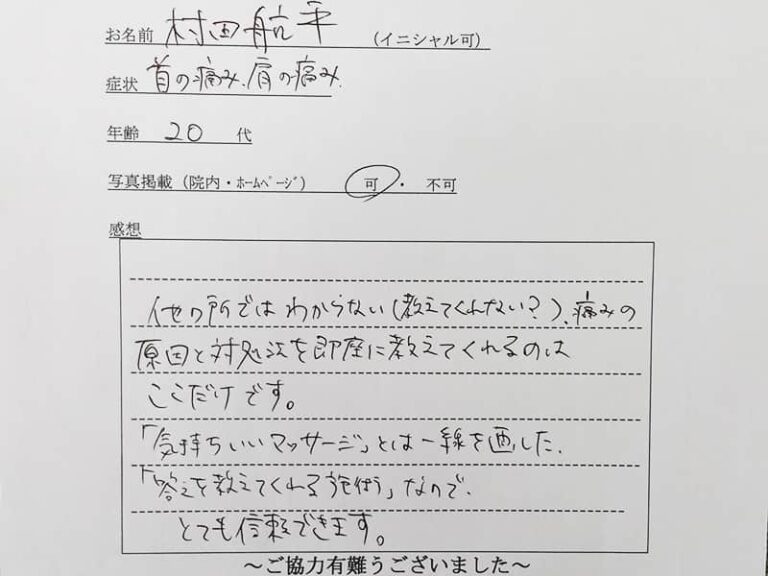 お名前 村田航平 (イニシャル可)
症状 首の痛み、肩の痛み
年齢 20 代
写真掲載(院内・ホームページ) 可・不可
感想
他の所ではわからない(教えてくれない?)、痛みの
原因と対処法を即座に教えてくれるのは
ここだけです。
「気持ちいいマッサージ」とは一線を画した、
「答えを教えてくれる施術」なので、
とても信頼できます。
～ご協力有難うございました～